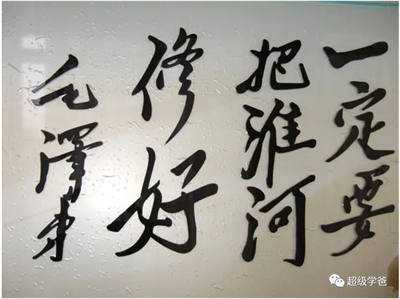 一定要
把淮河
修好
毛澤东
超级学爸